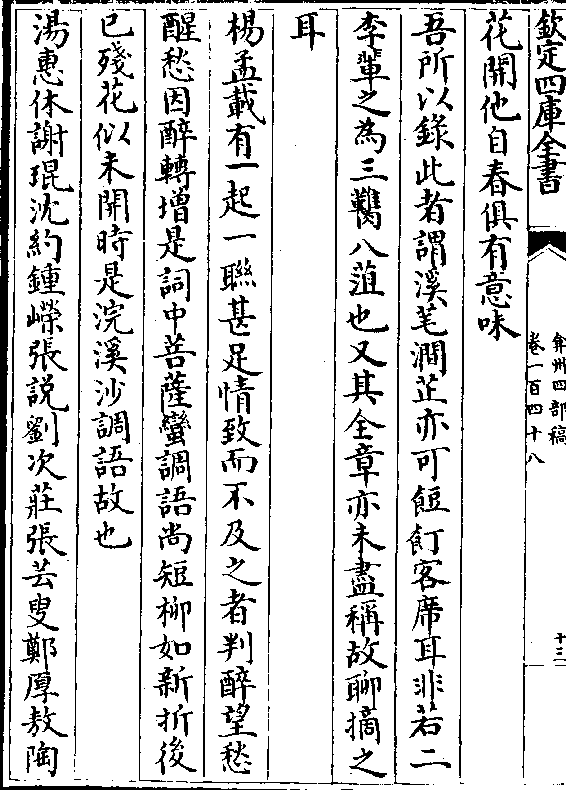 欽定四庫全書
弇州四部稿
卷一百四十八
十三
花開他自春俱有意味
吾所以錄此者謂溪毛澗芷亦可餖飣客席耳非若二
李輩之為三臡八菹也又其全章亦未盡稱故聊摘之
耳
楊孟載有一起一聯甚足情致而不及之者判醉望愁
醒愁因醉轉増是詞中菩薩蠻調語尚短柳如新折後
已殘花似未開時是浣溪沙調語故也
湯惠休謝琨沈約鍾嶸張說劉次莊張芸叟鄭厚敖陶